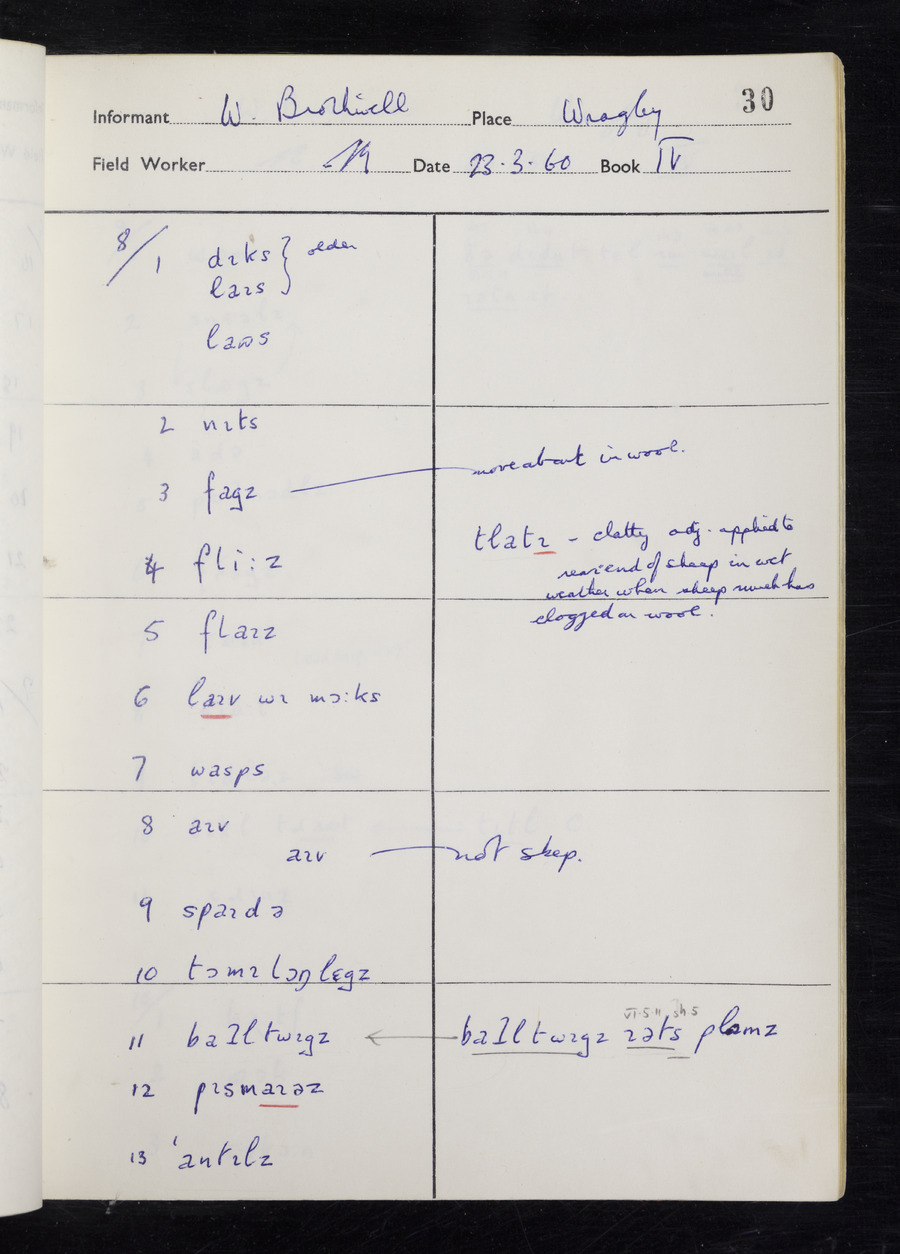 30
Informant W. Brothwell Place Wragby
Field Worker Date 23.3.60 Book IV
8/1 dɪks } older
laɪs
laʊs
2 nɪts
3 fagz — move about in wool.
tlatɪ - clatty adj. applied to
rear end of sheep in wet
weather when sheep muck has
clogged on wool.
4 fli:z
5 flaɪz
6 laɪv wɪ mɔ:ks
7 wasps
8 aɪv
aɪv — not skep.
9 spaɪdə
10 tɔmɪ lɒŋ lɛgz
11 baɪltwɪgz ← baɪltwɪgz ɪəts plʊmz
VI.5.11, sh 5
12 pɪsmaɪəz
13 'antɪlz